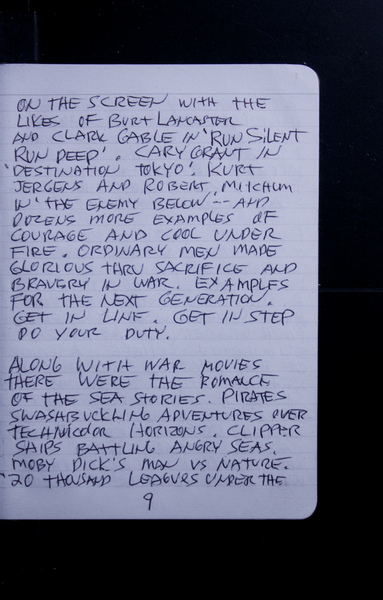 ON THE SCREEN WITH THE
LIKES OF BURT LANCASTER
AND CLARK GABLE IN 'RUN SILENT
RUN DEEP'. CARY GRANT IN
'DESTINATION TOKYO'. KURT
JERGENS AND ROBERT MITCHUM
IN 'THE ENEMY BELOW -- AND
DOZENS MORE EXAMPLES OF
COURAGE AND COOL UNDER
FIRE. ORDINARY MEN MADE
GLORIOUS THRU SACRIFICE AND
BRAVERY IN WAR. EXAMPLES
FOR THE NEXT GENERATION.
GET IN LINE. GET IN STEP
DO YOUR DUTY.
ALONG WITH WAR MOVIES
THERE WERE THE ROMANCE
OF THE SEA STORIES. PIRATES
SWASHBUCKLING ADVENTURES OVER
TECHNICOLOR HORIZONS. CLIPPER
SHIPS BATTLING ANGRY SEAS.
MOBY DICK'S MAN VS NATURE.
'20 THOUSAND LEAGUES UNDER THE
9